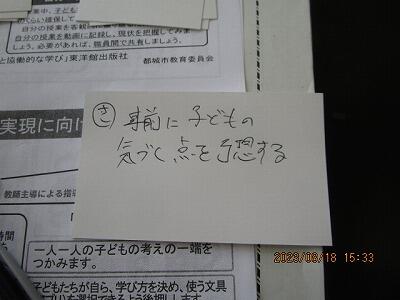 業中、子ども
のくらい確保して
自分の授業を客観
自分の授業を動画に記録し、現状を把握してみま
しょう。必要があれば、職員間で共有しましょう。
と協働的な学び」東洋館出版社
都城市教育委員会
㋚ 事前に子どもの
気づく点を予想する
実現に向け
教師主導による指導
時間
一人一人の子どもの考えの一端を
つかみます。
子どもたちが自ら、学び方を決め、使う文具
を選択できるよう後押しします
2023/08/18 15:33